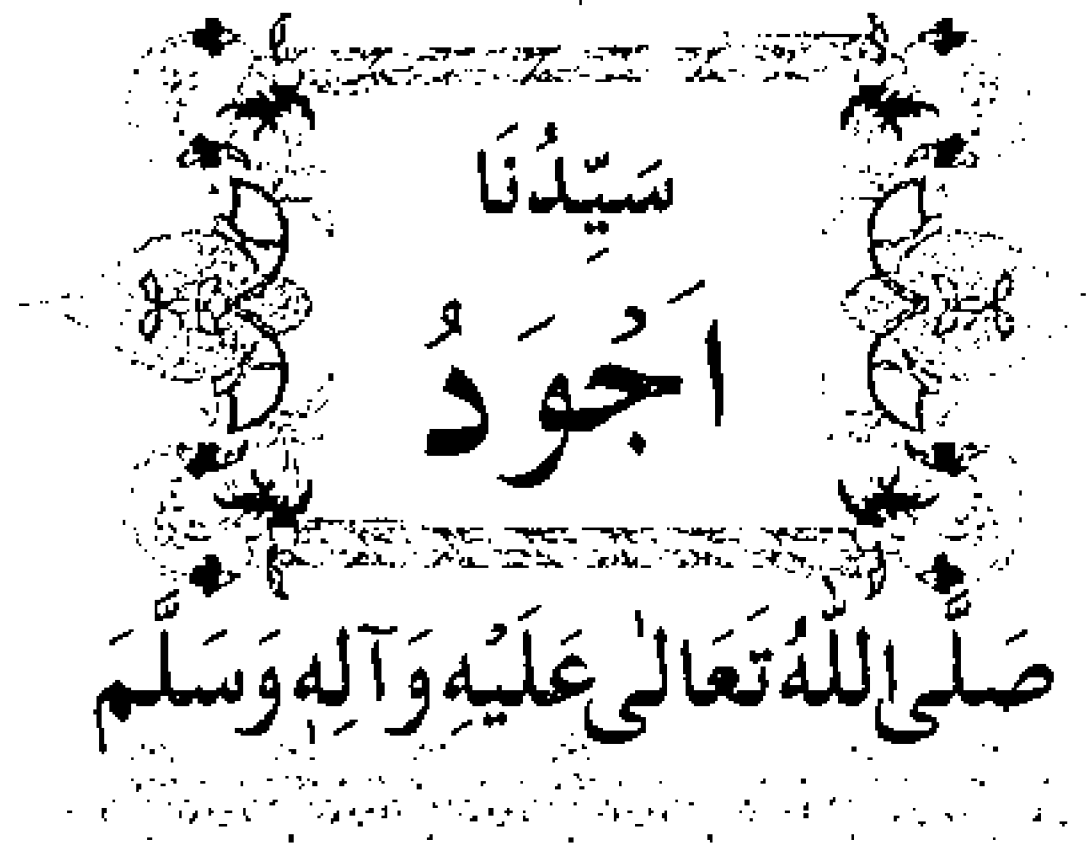 سَيِّدُنَا
اَجْوَدُ
صَلَّی اللّٰهُ تَعَالٰی عَلَيْهِ وَآلِهٖ وَسَلَّمَ